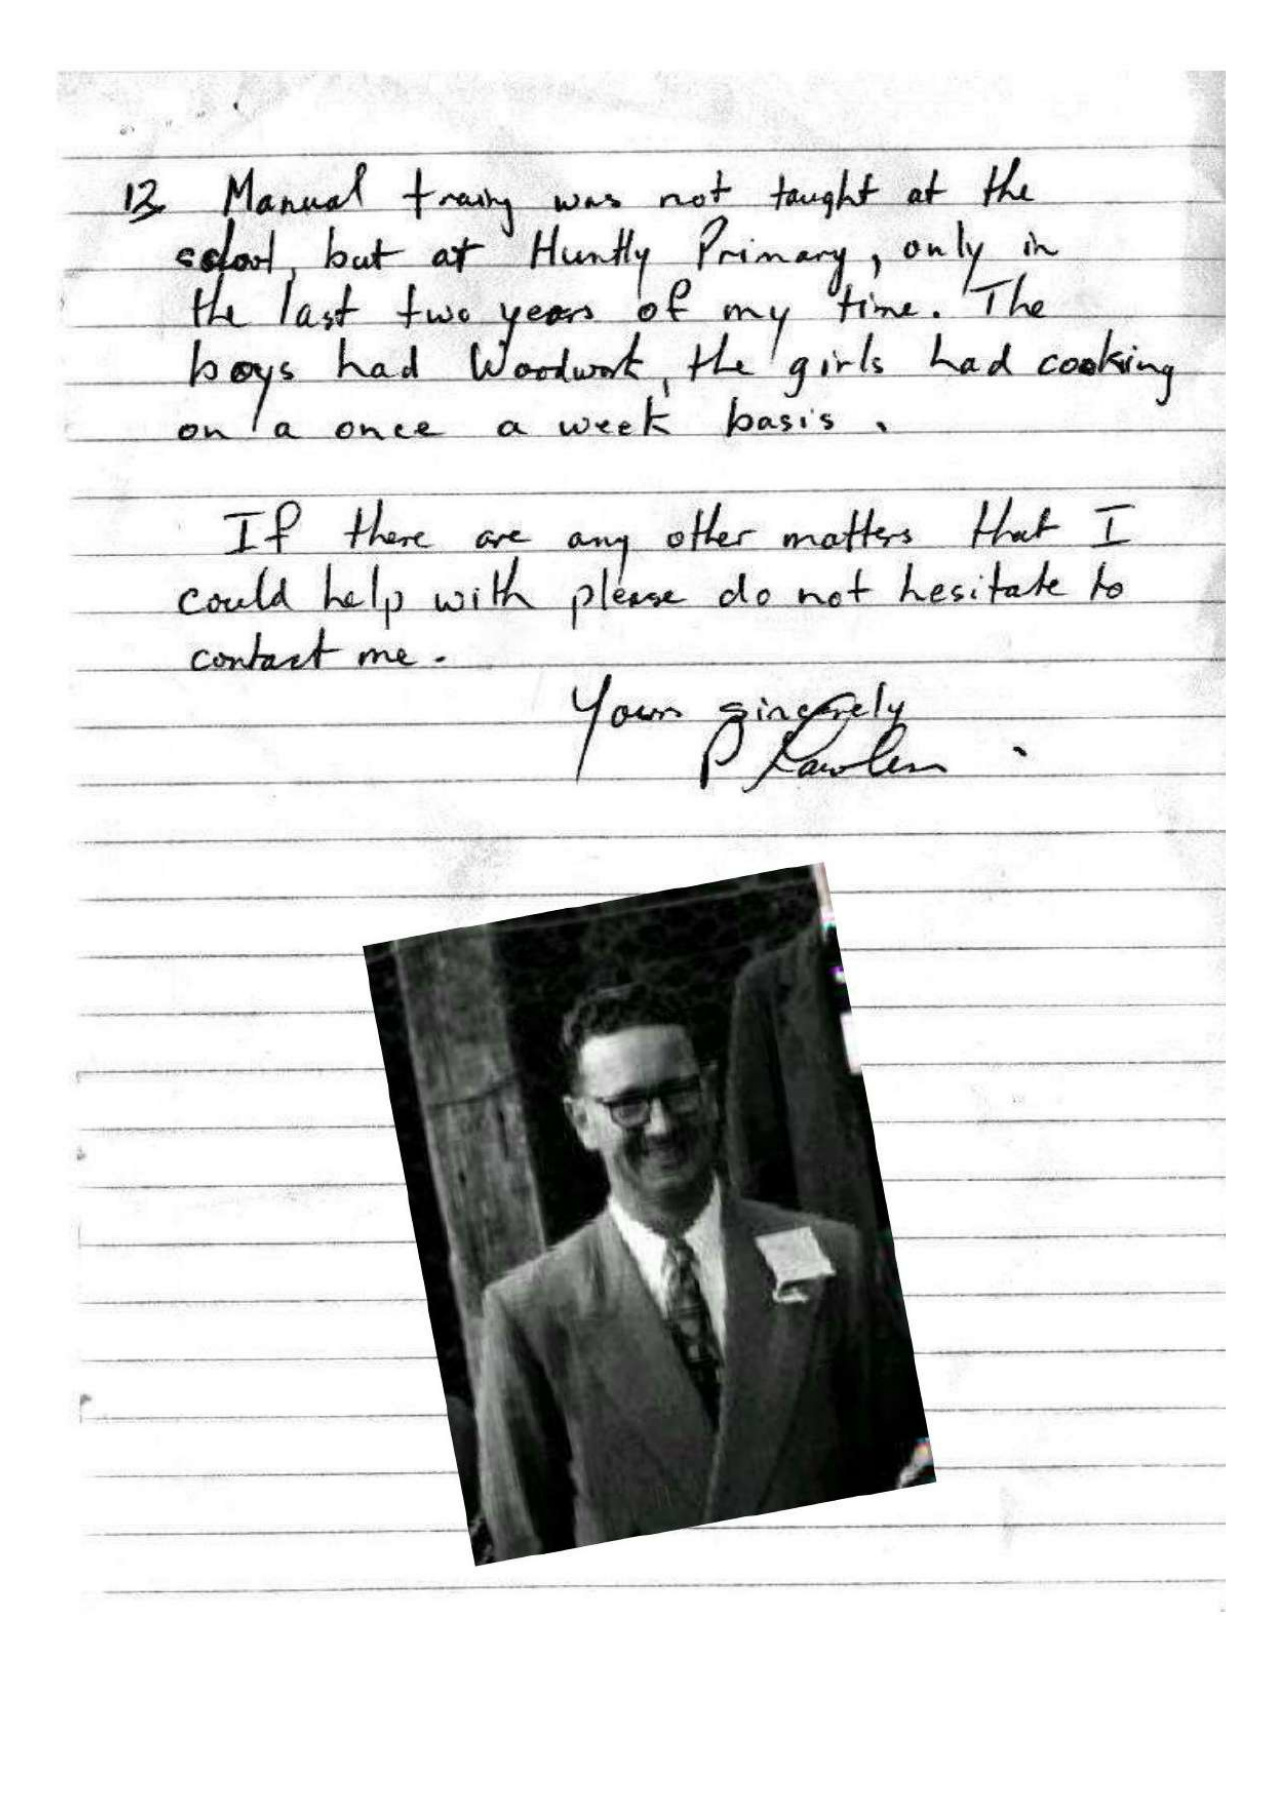 12. Manual traing was not taught at the
school, but at Huntly Primary, only in
the last two years of my time. The
boys had Woodwork, the girls had cooking
on a once a week basis.
If there are any other matters that I
could help with please do not hesitate to
contact me.
Yours sincerely
P